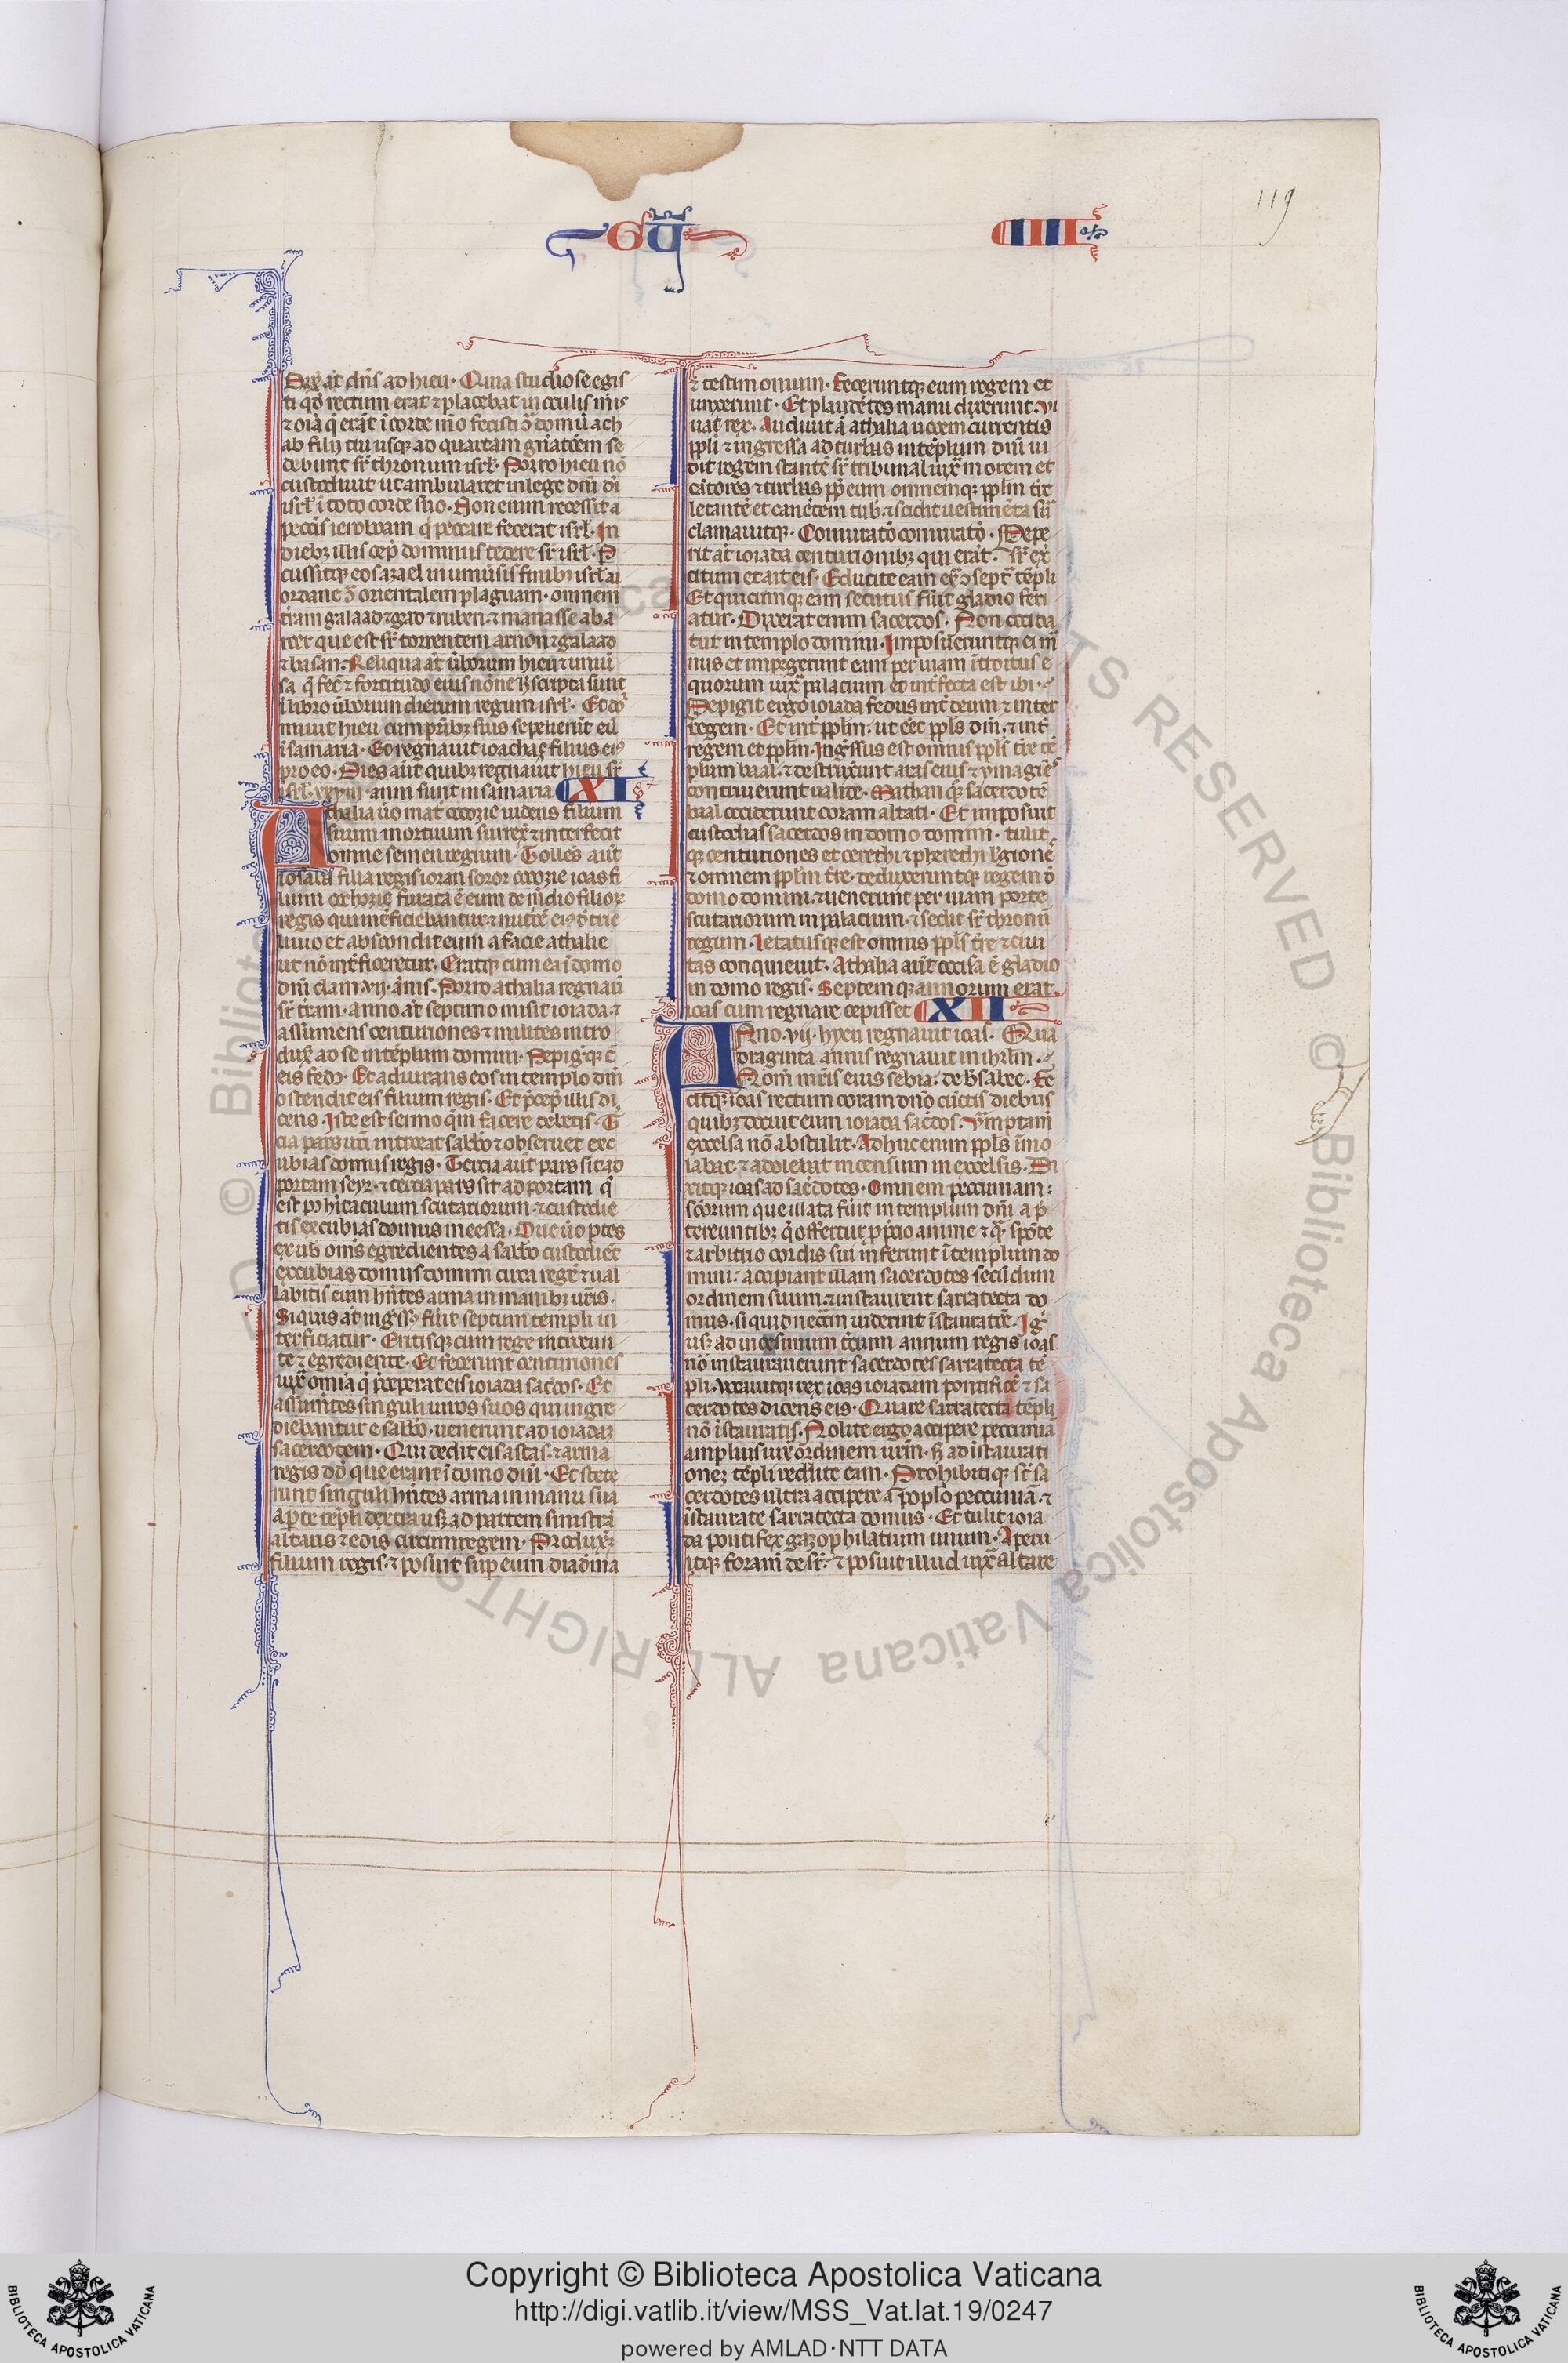 119
GUM
IIII
Dixit aūt dn̄s ad hieu. Quia studiose egis
ti qd̓ rectum erat ⁊ placebat in oculis meis
⁊ oīa q̄ erāt ī corde m̄o fecisti ꝯ̄ domū ach
ab filii tui usqꝫ ad quartam gn̄atōem se
debunt sr̄ thronum isrl̓. Porro hieu nō
custodiuit ut ambularet in lege dn̄i dī
isrl̓ ī toto corde suo. Non enim recessit a
pecc̄is ieroboam q̓ peccare fecerat isrl̓. In
diebꝫ illis cep̄ dominus tedere sr̄ isrl̓. P̄
cussitqꝫ eos azael in uniuersis finibꝫ isrl̓ a i
ordane ꝯ̄ orientalem plagam. omnem
tr̄am galaad ⁊ gad ⁊ ruben. ⁊ manasse ab a
roer que est sr̄ torrentem arnon ⁊ galaad
⁊ basan. Reliqua aūt ūborum hieu ⁊ uniū
sa q̄ fec̄ ⁊ fortitudo eius nōne h̄ scripta sunt
ī libro ūborum dierum regum isrl̓. Et dor
miuit hieu cum pr̄ibꝫ suis sepelierūt eū
ī samaria. Et regnauit ioachaz filius ei᷒
pro eo. Dies aūt quibꝫ regnauit hieu sr̄
isrl̓. xxviii. anni sunt in samaria XI
Athalia ūo mat̄ ocozie uidens filium
suum mortuum surrex̄ ⁊ interfecit
omne semen regium. Tollēs aūt
iosaba filia regis ioran soror ocozie ioas fi
lium ochozie furata ē eum de medio filioꝝ
regis qui int̄ficiebantur. ⁊ nutrice ei᷒ d̄ tric
linio et abscondit eum a facie athalie
ut nō int̄ficeretur. Eratqꝫ cum ea ī domo
dn̄i clam. vii. ānis. Porro athalia regnauit
sr̄ tr̄am. anno aūt septimo misit ioiada. ⁊
assumens centuriones ⁊ milites intro
dux̄ ad se in tēplum domini. Pepigitqꝫ cū
eis fed᷒. Et adiurans eos in templo dn̄i
ostendit eis filium regis. Et p̄cep̄ illis di
cens. Iste est sermo q̄m facere debetis. T̄
cia pars ur̄i introeat sabb̄o ⁊ obseruet exc
ubias domus regis. Tercia aūt pars sit ad
portam seyr. ⁊ tercia pars sit ad portam q̄
est p᷒ habitaculum scutariorum. ⁊ custodie
tis excubias domus meessa. Due ūo partes
ex uob̄ om̄s egredientes a sabb̄o custodiēt
excubias domus domini circa regē ⁊ ual
labitis eum hn̄tes arma in manibꝫ ur̄is.
Si quis aūt ing̓ss᷒ fuit septum templi in
terficiatur. Eritisqꝫ cum rege introeun
te ⁊ egrediente. Et fecerunt centuriones
iux̄ omnia q̄ p̄ceperat eis ioiada sac̄dos. Et
assumtes singuli uiros suos qui ingre
diebantur e sabb̄o. uenerunt ad ioiadaꝫ
sacerdotem. Qui dedit eis astas. ⁊ arma
regis dd̓ que erant ī domo dn̄i. Et stete
runt singuli hn̄tes arma in manu sua
a p̄te tēpli dextra usqꝫ ad partem sinistrā
altaris ⁊ edis circum regem. Produxitqꝫ
filium regis. ⁊ posuit sup̄ eum diadēma
⁊ testimonium. feceruntqꝫ eum regem et
unxerunt. Et plaudētes manu dixerunt. ui
uat rex. Audiuit ā athalia uocem currentis
ppl̓i ⁊ ingressa ad turbas in tēplum dn̄i ui
dit regem stantē sr̄ tribunal iux̄ morem et
cātores ⁊ turbas ꝓp̄ eum omnemqꝫ ppl̓m tr̄e
letantē et canētem tubis. ⁊ scidit uestimēta sua
clamauitqꝫ. Coniuratō coniuratō. Prece
pit aūt ioiada centurionibꝫ qui erāt sr̄ ex̄
citum et ait eis. Educite eam ex̄ septa tēpli
Et quicumqꝫ eam secutus fuit gladio feri
atur. Dixerat enim sacerdos. Non occida
tur in templo domini. Imposueruntqꝫ ei m̄
nus et impegerunt eam per uiam īt̄roitus e
quorum iux̄ palacium et int̄fecta est ibi.
Pepigit ergo ioiada fedus int̄ deum ⁊ inter
regem. Et int̄ ppl̓m. ut eēt ppl̓s dn̄i. ⁊ int̄
regem et ppl̓m. Ing̓ssus est omnis ppl̓s tr̄e tē
plum baal. ⁊ destruxerunt aras eius ⁊ ymagīes
contriuerunt ualide. Mathan qꝫ sacerdotē
baal occiderunt coram altari. Et imposuit
custodias sacerdos in domo domini. tulit
qꝫ centuriones et cerethi ⁊ pherethi legionē
⁊ omnem ppl̓m tr̄e. deduxeruntqꝫ regem d̄
domo domini. ⁊ uenerunt per uiam porte
scutariorum in palacium. ⁊ sedit sr̄ thronū
regum. Letatusqꝫ est omnis ppl̓s tr̄e ⁊ ciui
tas conquieuit. Athalia aūt occisa ē gladio
in domo regis. Septemqꝫ annorum erat
ioas cum regnare cepisset XII
Anno. vii. hyeu regnauit ioas. Qua
draginta annis regnauit in ihrl̓m.
Nom̄ mr̄is eius sebia. de b̄sabee. Fe
citqꝫ ioas rectum coram dn̄o cūctis diebus
quibꝫ docuit eum ioiada sac̄dos. Ver̄mptam̄
excelsa nō abstulit. Adhuc enim ppl̓s īmo
labat. ⁊ adolebat incensum in excelsis. Di
xitqꝫ ioas ad sac̄dotes. Omnem peccuniam
sc̄orum que illata fuit in templum dn̄i a p̄
tereuntibꝫ q̄ offertur p̄ p̄cio anime ⁊ q̄ spōte
⁊ arbitrio cordis sui inferunt ī templum do
mini. accipiant illam sacerdotes secūdum
ordinem suum. ⁊ instaurent sartatecta do
mus. si quid nec̄im uiderint īstauratōe. Ig̓
usqꝫ ad uicesimum tc̄ium annum regis ioas
nō instaurauerunt sacerdotes sartatecta tē
pli. uocauitqꝫ rex ioas ioiadam pontificē ⁊ sa
cerdotes dicens eis. Quare sartatecta tēpli
nō īstauratis. Nolite ergo accipere peccuniā
amplius iux̄ ordinem ur̄m. sꝫ ad īstaurati
onem tēpli reddite eam. Prohibitiqꝫ sr̄ sa
cerdotes ultra accipere a pop̄lo peccuniā. ⁊
īstaurare sartatecta domus. Et tulit ioia
da pontifex gazophilatium unum. Aperu
itqꝫ foramen desr̄. ⁊ posuit illud iux̄ altare
Copyright © Biblioteca Apostolica Vaticana
http://digi.vatlib.it/view/MSS_Vat.lat.19/0247
powered by AMLAD·NTT DATA